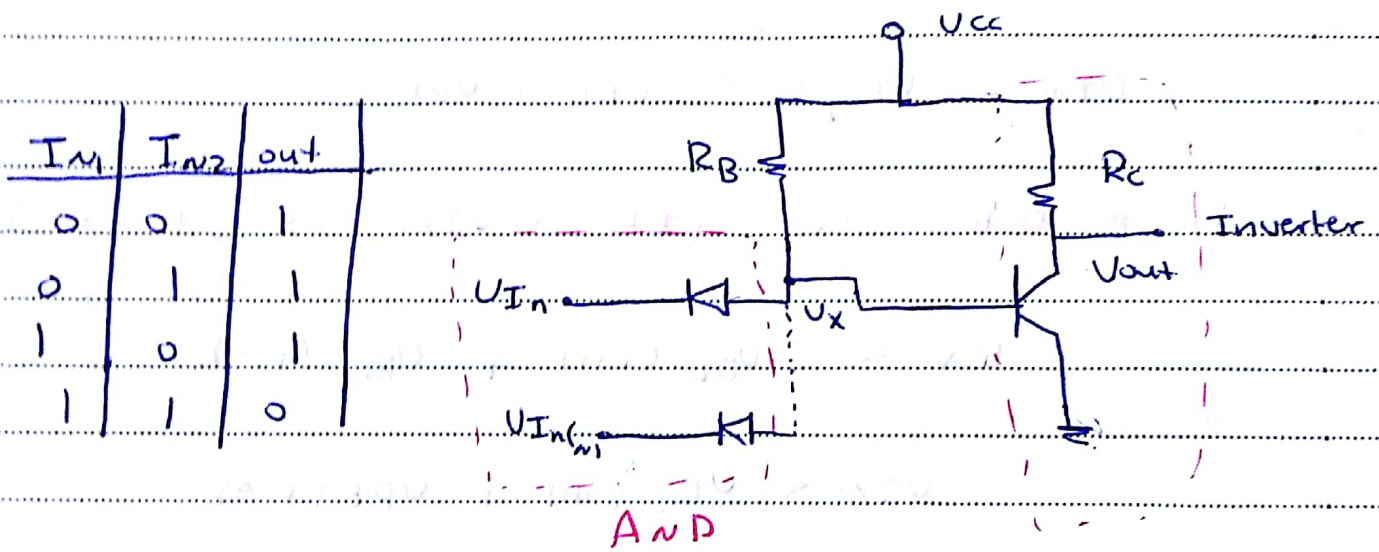 VCC
IN1 IN2 out
0 0 1
0 1 1
1 0 1
1 1 0
RB
RC
Inverter
Vout
VIn
VX
VIn(N)
AND